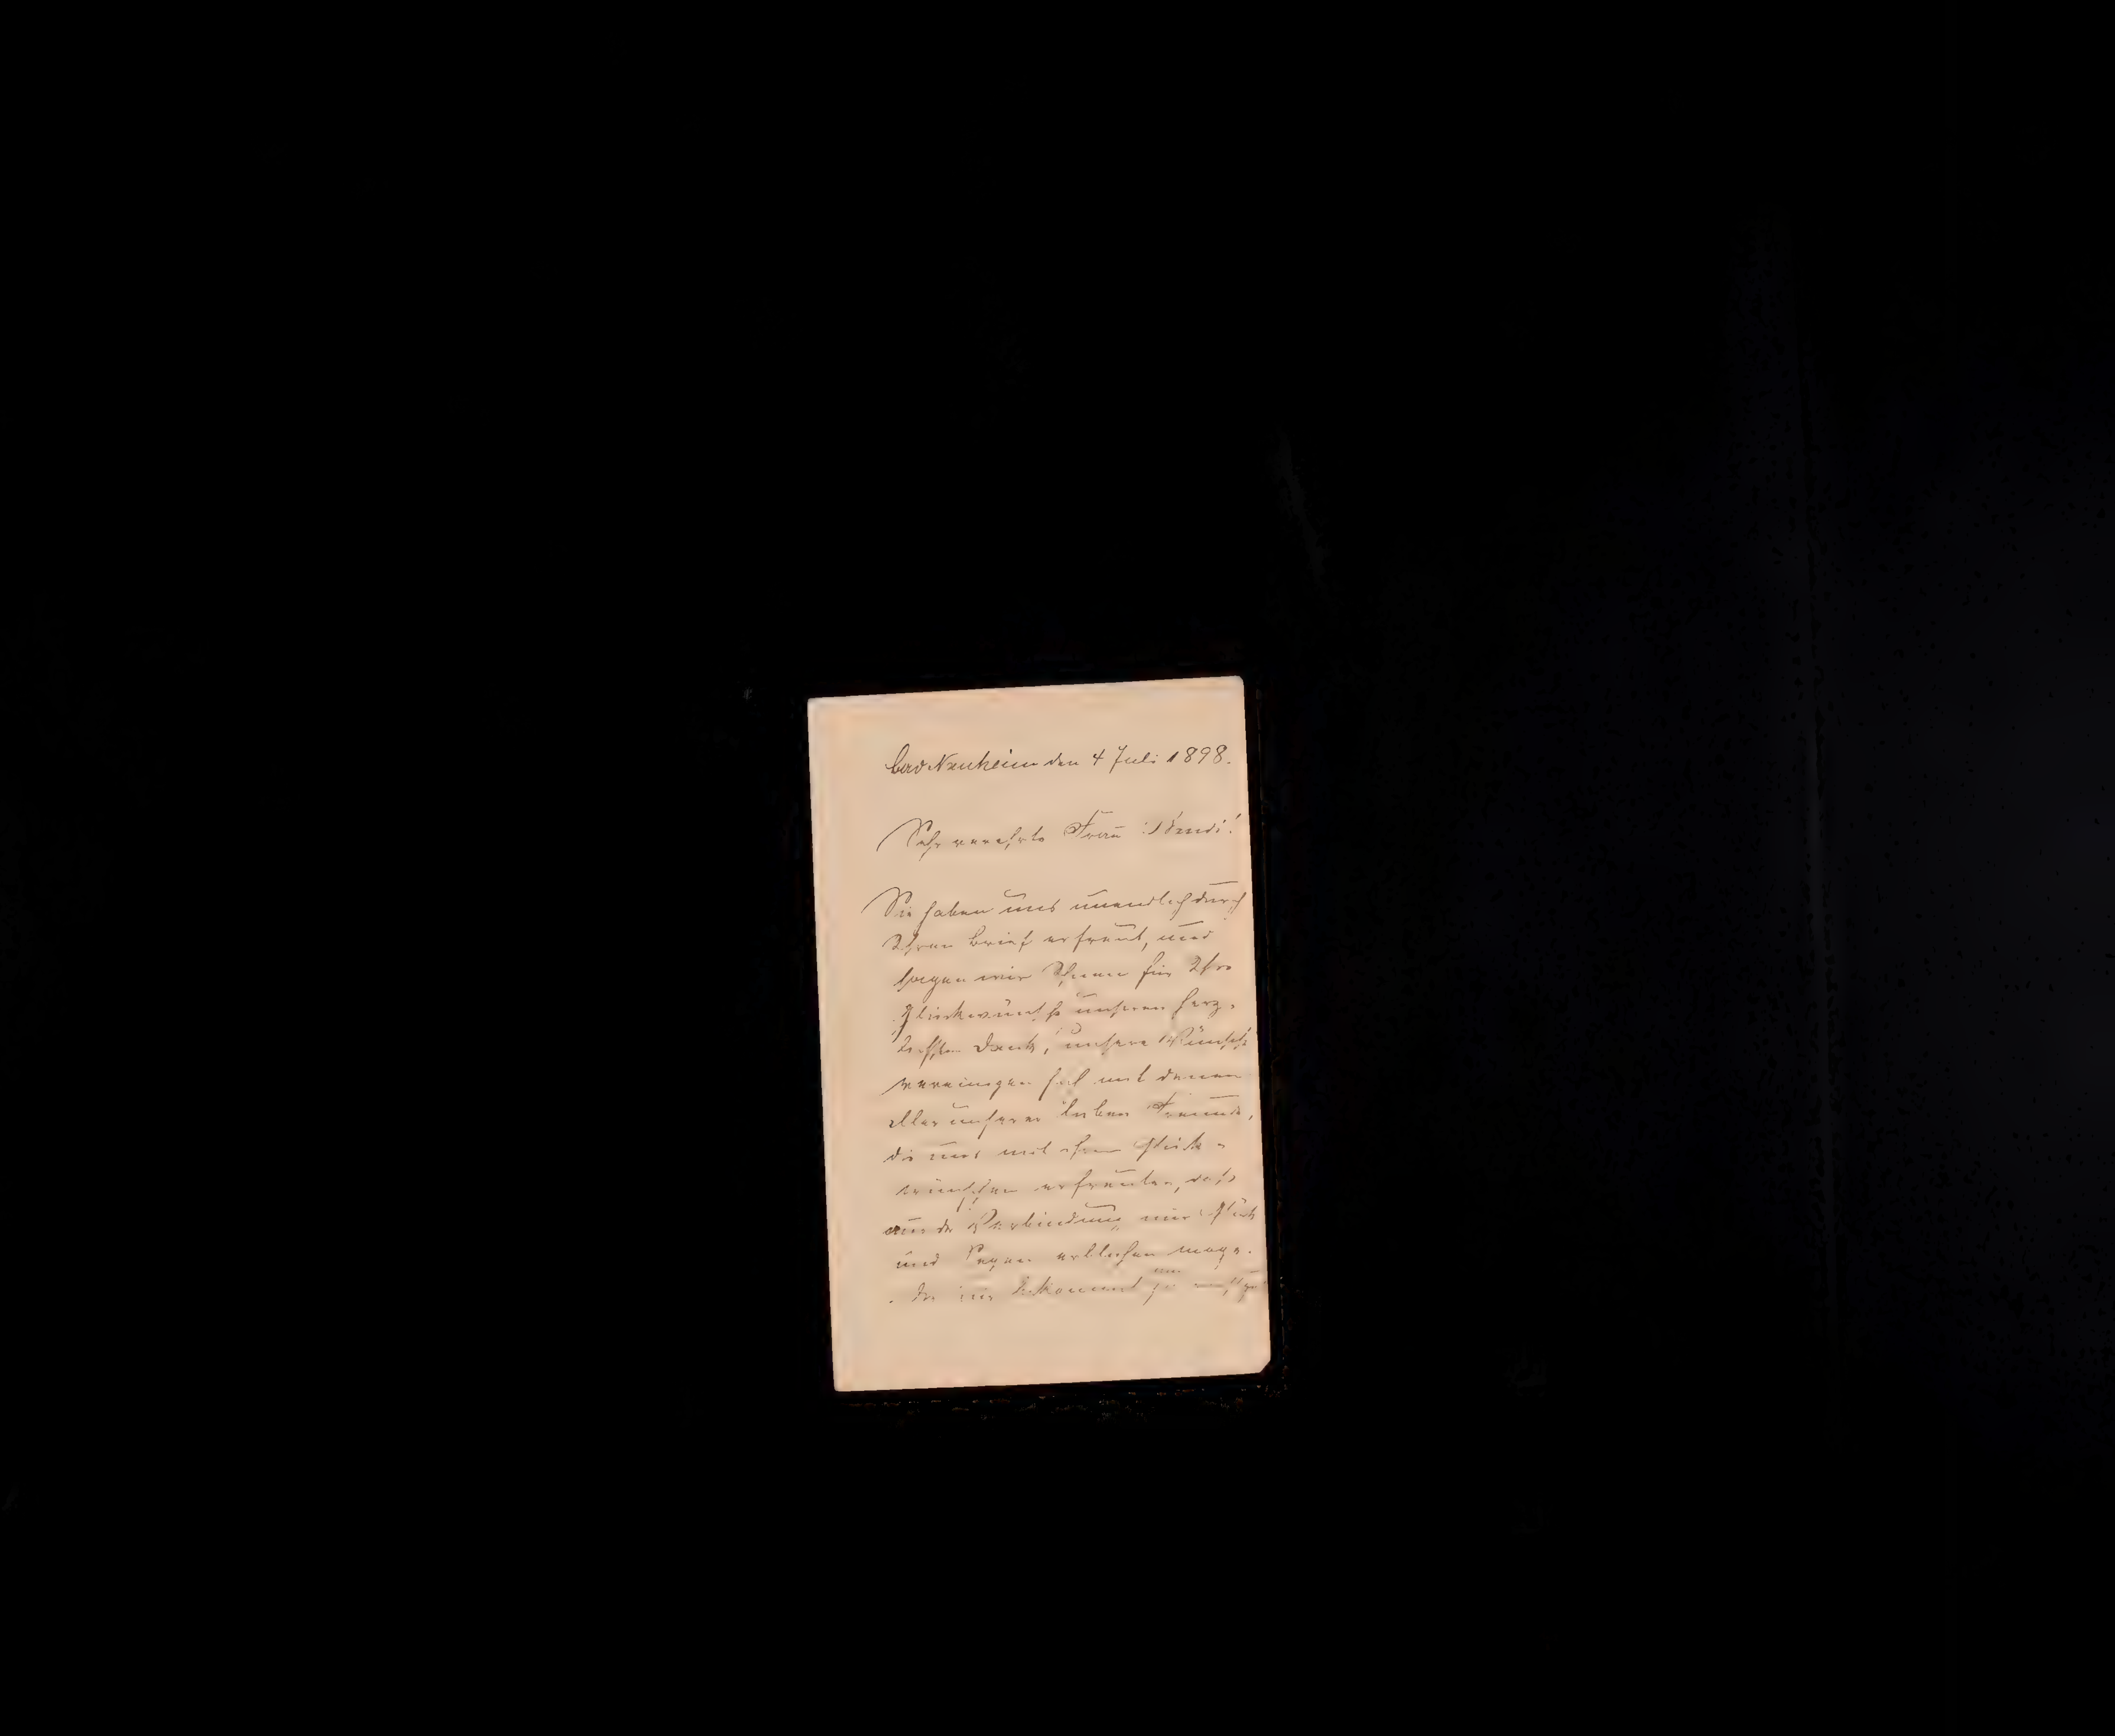 Bad Nauheim den 4 Juli 1898.
Sehr verehrte Frau
Sie haben uns unendlich durch
Ihren Brief erfreut, und
sagen wir Ihnen für Ihre
Glückwünsche unseren herz-
lichsten Dank, unsere Wünsche
vereinigen sich mit denen
aller unserer lieben Freunde,
die uns mit ihren Glück-
wünschen erfreuten, dass
aus der Verbindung nur Glück
und Segen erblühen möge.